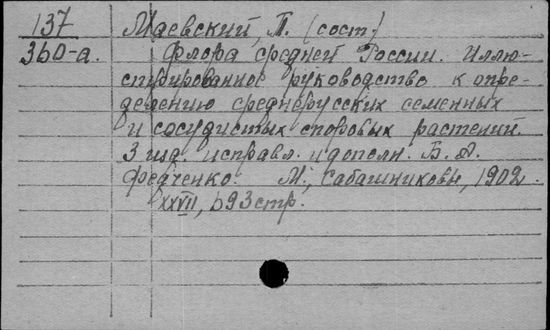 137 Маевский, П. (сост.)
360-а. Флора средней России. Иллю-
стрированное руководство к опре-
делению среднерусских семенных
и сосудистых споровых растений.
3 изд. исправл. и дополн. Б. А.
Федченко. М., Сабашниковы, 1902.
XXVII, 693 стр.